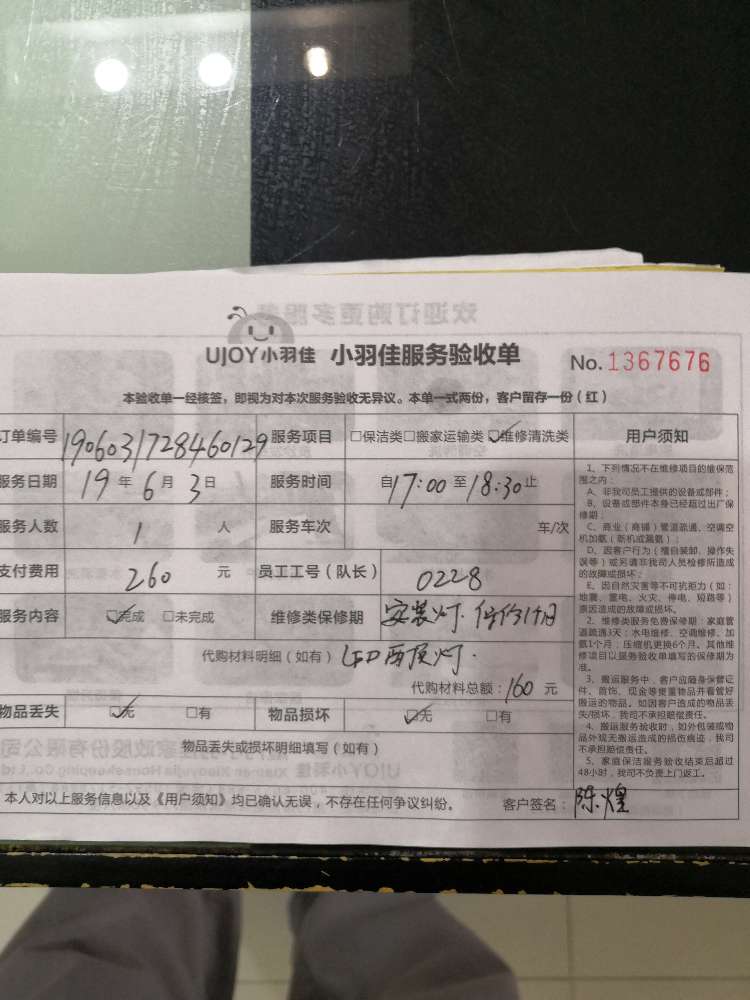 UJOY小羽佳 小羽佳服务验收单 No. 1367676
本验收单一经核签，即视为对本次服务验收无异议。本单一式两份，客户留存一份（红）
订单编号 1906031728460129 服务项目 □保洁类□搬家运输类☑维修清洗类 用户须知
服务日期 19 年 6 月 3 日 服务时间 自17:00至18:30止
服务人数 1 人 服务车次 车/次
支付费用 260 元 员工工号（队长） 0228
服务内容 ☑完成 □未完成 维修类保修期 安装灯.保修1个月
代购材料明细（如有） LED 吸顶灯.
代购材料总额：160 元
物品丢失 ☑无 □有 物品损坏 ☑无 □有
物品丢失或损坏明细填写（如有）
本人对以上服务信息以及《用户须知》均已确认无误，不存在任何争议纠纷。 客户签名：陈煌
1、下列情况不在维修项目的维保范
围之内：
A、非我司员工提供的设备或部件；
B、设备或部件本身已经超过出厂保
修期；
C、商业（商铺）管道疏通、空调空
机加氨（新机或漏氨）；
D、因客户行为（擅自装卸、操作失
误等）或另请非我司人员检修所造成
的故障或损坏；
E、因自然灾害等不可抗拒力（如：
地震、雷电、火灾、停电、短路等）
原因造成的故障或损坏。
2、维修类服务免费保修期：家庭管
道疏通3天；水电维修、空调维修、加
氨1个月；压缩机更换6个月。其他维
修项目以服务验收单填写的保修期为
准。
3、搬运服务中，客户应随身保管证
件、首饰、现金等贵重物品并看管好
搬运的物品。如因客户造成的物品丢
失/损坏，我司不承担赔偿责任。
4、搬运服务验收时，如外包装或物
品外观无搬运造成的损伤痕迹，我司
不承担赔偿责任。
5、家庭保洁服务验收结束后超过
48小时，我司不负责上门返工。